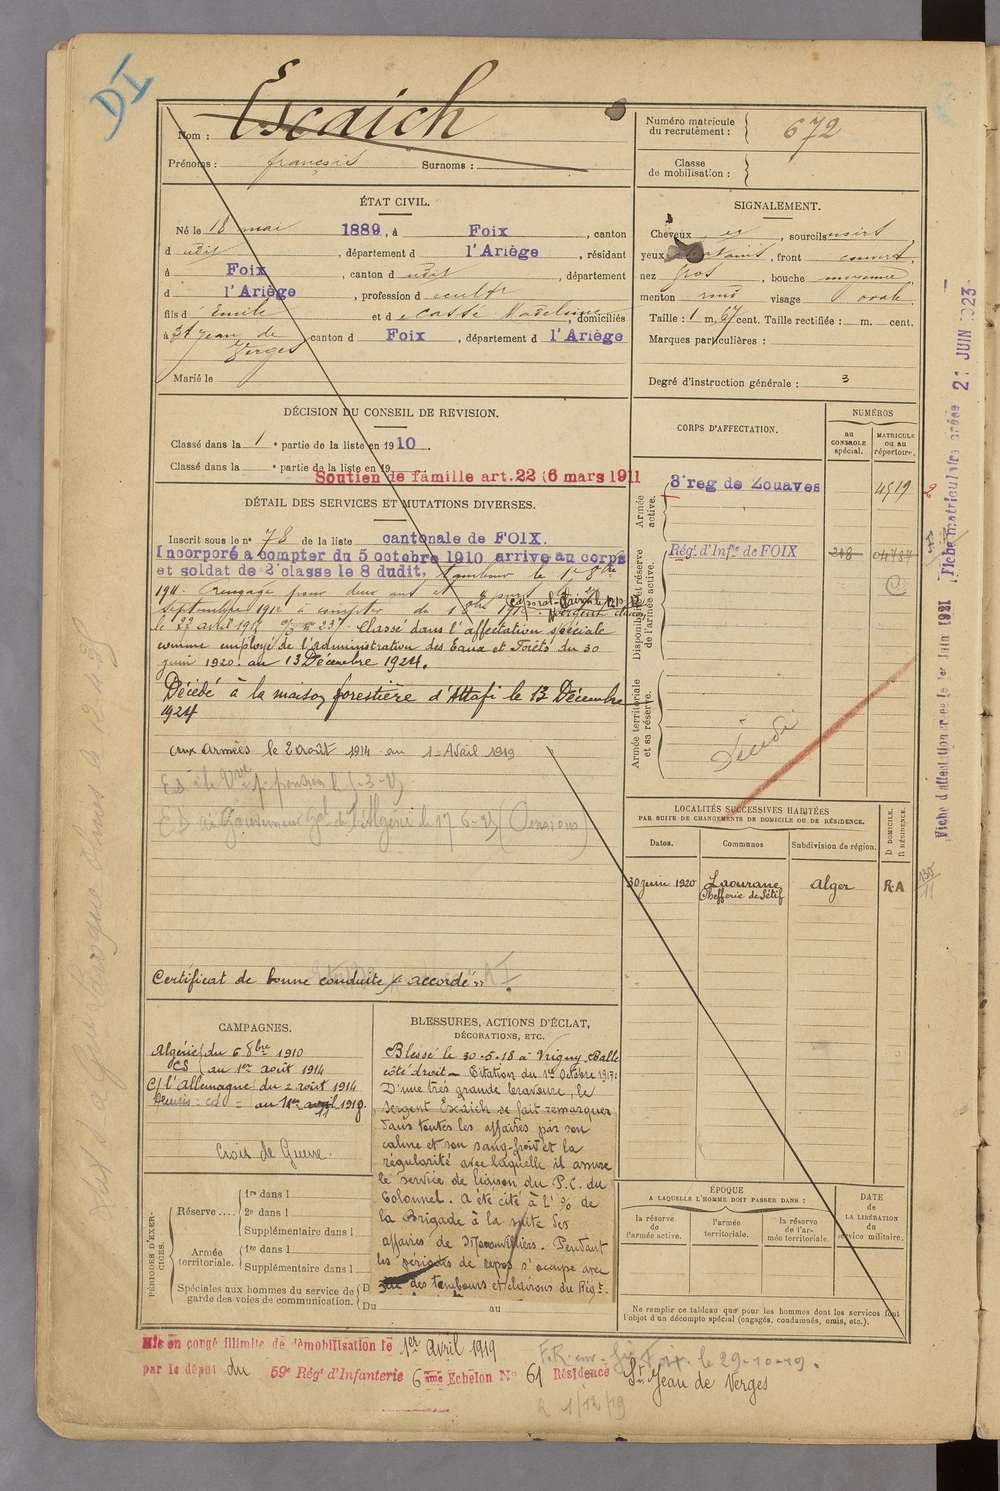 DI
Nom : Escaich
Prénoms : françois Surnoms :
Numéro matricule du recrutement : 672
Classe de mobilisation :
ÉTAT CIVIL.
Né le 18 mai 1889, à Foix, canton
d udit, département d l'Ariège, résidant
à Foix, canton d udit, département
d l'Ariège, profession d cultr
fils d' Emile et d Madeleine, domiciliés
à St Jean de Verges canton d Foix, département d l'Ariège
Marié le
SIGNALEMENT.
Cheveux et, sourcils noirs
yeux, front couvert,
nez gros, bouche moyenne
menton rond visage ovale
Taille : 1 m. 67 cent. Taille rectifiée : m. cent.
Marques particulières :
Degré d'instruction générale : 3
DÉCISION DU CONSEIL DE REVISION.
Classé dans la 1e partie de la liste en 1910.
Classé dans la e partie de la liste en 19
Soutien de famille art.22 (6 mars 1911
DÉTAIL DES SERVICES ET MUTATIONS DIVERSES.
Inscrit sous le no 78 de la liste cantonale de FOIX.
Incorporé a compter du 5 octobre 1910 arrivé au corps
et soldat de 2e classe le 8 dudit, Tambour le 1er 8bre
1911. Rengagé pour deux ans
Septembre 1912 à compter du
le 22 avril 1915 237. Classé dans l'affectation spéciale
comme employé de l'administration des Eaux et Forêts du 30
juin 1920. au 13 Décembre 1924.
Décédé à la maison forestière d'Attafi le 13 Décembre
1924
aux armées le 2 août 1914 au 1 Avril 1919
ED au Gouvernement Gal de l'Algérie le 17-6-25 (Pensions)
Certificat de bonne conduite "accordé".
CORPS D'AFFECTATION.
NUMÉROS
au CONTROLE spécial.
MATRICULE ou au répertoire.
Armée active.
3e reg de Zouaves 4519
Disponibilité et réserve de l'armée active.
Régt d'Infie de FOIX 218 04784
Armée territoriale et sa réserve.
Décédé
LOCALITÉS SUCCESSIVES HABITÉES
PAR SUITE DE CHANGEMENTS DE DOMICILE OU DE RÉSIDENCE.
Dates. Communes Subdivision de région. D DOMICILE. R RÉSIDENCE.
30 juin 1920 Laourane Alger R.A
Chefferie de Sétif
CAMPAGNES.
Algérie du 6 8bre 1910
CS au 1er août 1914
C/ l'Allemagne du 2 août 1914
au 1er avril 1919.
Croix de Guerre.
BLESSURES, ACTIONS D'ÉCLAT,
DÉCORATIONS, ETC.
Blessé le 30-5-18 à Vrigny. Balle
côté droit - Citation du 1er Octobre 1917:
D'une très grande bravoure, le
sergent Escaich se fait remarquer
dans toutes les affaires par son
calme et son sang-froid et la
régularité avec laquelle il assure
le service de liaison du P.C. du
Colonnel. A été cité à l'% de
la Brigade à la suite des
affaires de Moronvilliers. Pendant
les périodes de repos s'occupe avec
des tambours et clairons du Régt.
PÉRIODES D'EXERCICES.
Réserve.... 1re dans l
2e dans l
Supplémentaire dans l
Armée territoriale. 1re dans l
Supplémentaire dans l
Spéciales aux hommes du service de garde des voies de communication. D
Du au
ÉPOQUE
A LAQUELLE L'HOMME DOIT PASSER DANS :
la réserve de l'armée active.
l'armée territoriale.
la réserve de l'armée territoriale.
DATE de LA LIBÉRATION du service militaire.
Ne remplir ce tableau que pour les hommes dont les services font
l'objet d'un décompte spécial (engagés, condamnés, omis, etc.).
Mis en congé illimité de démobilisation le 1er Avril 1919
par le dépôt du 59e Régt d'Infanterie 6ème Echelon No 61 Résidence St Jean de Verges
F.R. env. le 29-10-19.
R 1/12/19
Fiche matriculaire créée 21 JUIN 1923
Fiche d'affectation créée le 1er Juin 1921